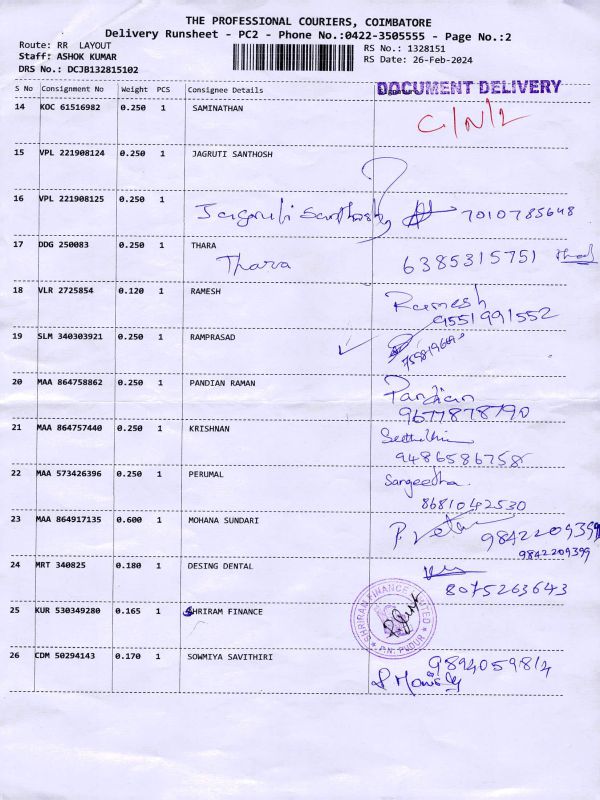 THE PROFESSIONAL COURIERS, COIMBATORE
Delivery Runsheet - PC2 - Phone No.:0422-3505555 - Page No.:2
Route: RR LAYOUT
RS No.: 1328151
Staff: ASHOK KUMAR
RS Date: 26-Feb-2024
DRS No.: DCJB132815102
S No Consignment No Weight PCS Consignee Details
DOCUMENT DELIVERY
14 KOC 61516982 0.250 1 SAMINATHAN
C/N/L
15 VPL 221908124 0.250 1 JAGRUTI SANTHOSH
16 VPL 221908125 0.250 1
Jagruti Santhosh 7010785648
17 DDG 250083 0.250 1 THARA
Thara 6385315751
18 VLR 2725854 0.120 1 RAMESH
Ramesh
9551991552
19 SLM 340303921 0.250 1 RAMPRASAD
20 MAA 864758862 0.250 1 PANDIAN RAMAN
Pandian
9677878790
21 MAA 864757440 0.250 1 KRISHNAN
9486586758
22 MAA 573426396 0.250 1 PERUMAL
Sangeetha
8681042530
23 MAA 864917135 0.600 1 MOHANA SUNDARI
9842209399
9842209399
24 MRT 340825 0.180 1 DESING DENTAL
8075263643
25 KUR 530349280 0.165 1 SHRIRAM FINANCE
SHRIRAM FINANCE LIMITED
P.N. PUDUR
26 CDM 50294143 0.170 1 SOWMIYA SAVITHIRI
9894059814